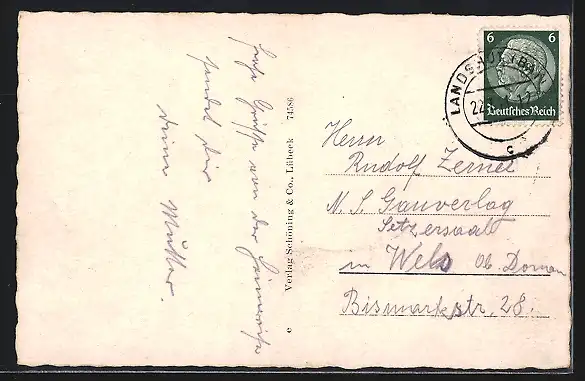 Frohe Grüße von der Heimreise
sendet dir
deine Mutter.
Verlag Schöning & Co., Lübeck 74586
6 6
Deutsches Reich
LANDSHUT (BAY)
22
12
c
Herrn
Rudolf Zernel
N. S. Gauverlag
Setzersaal
in Wels Ob. Donau
Bismarkstr. 28.